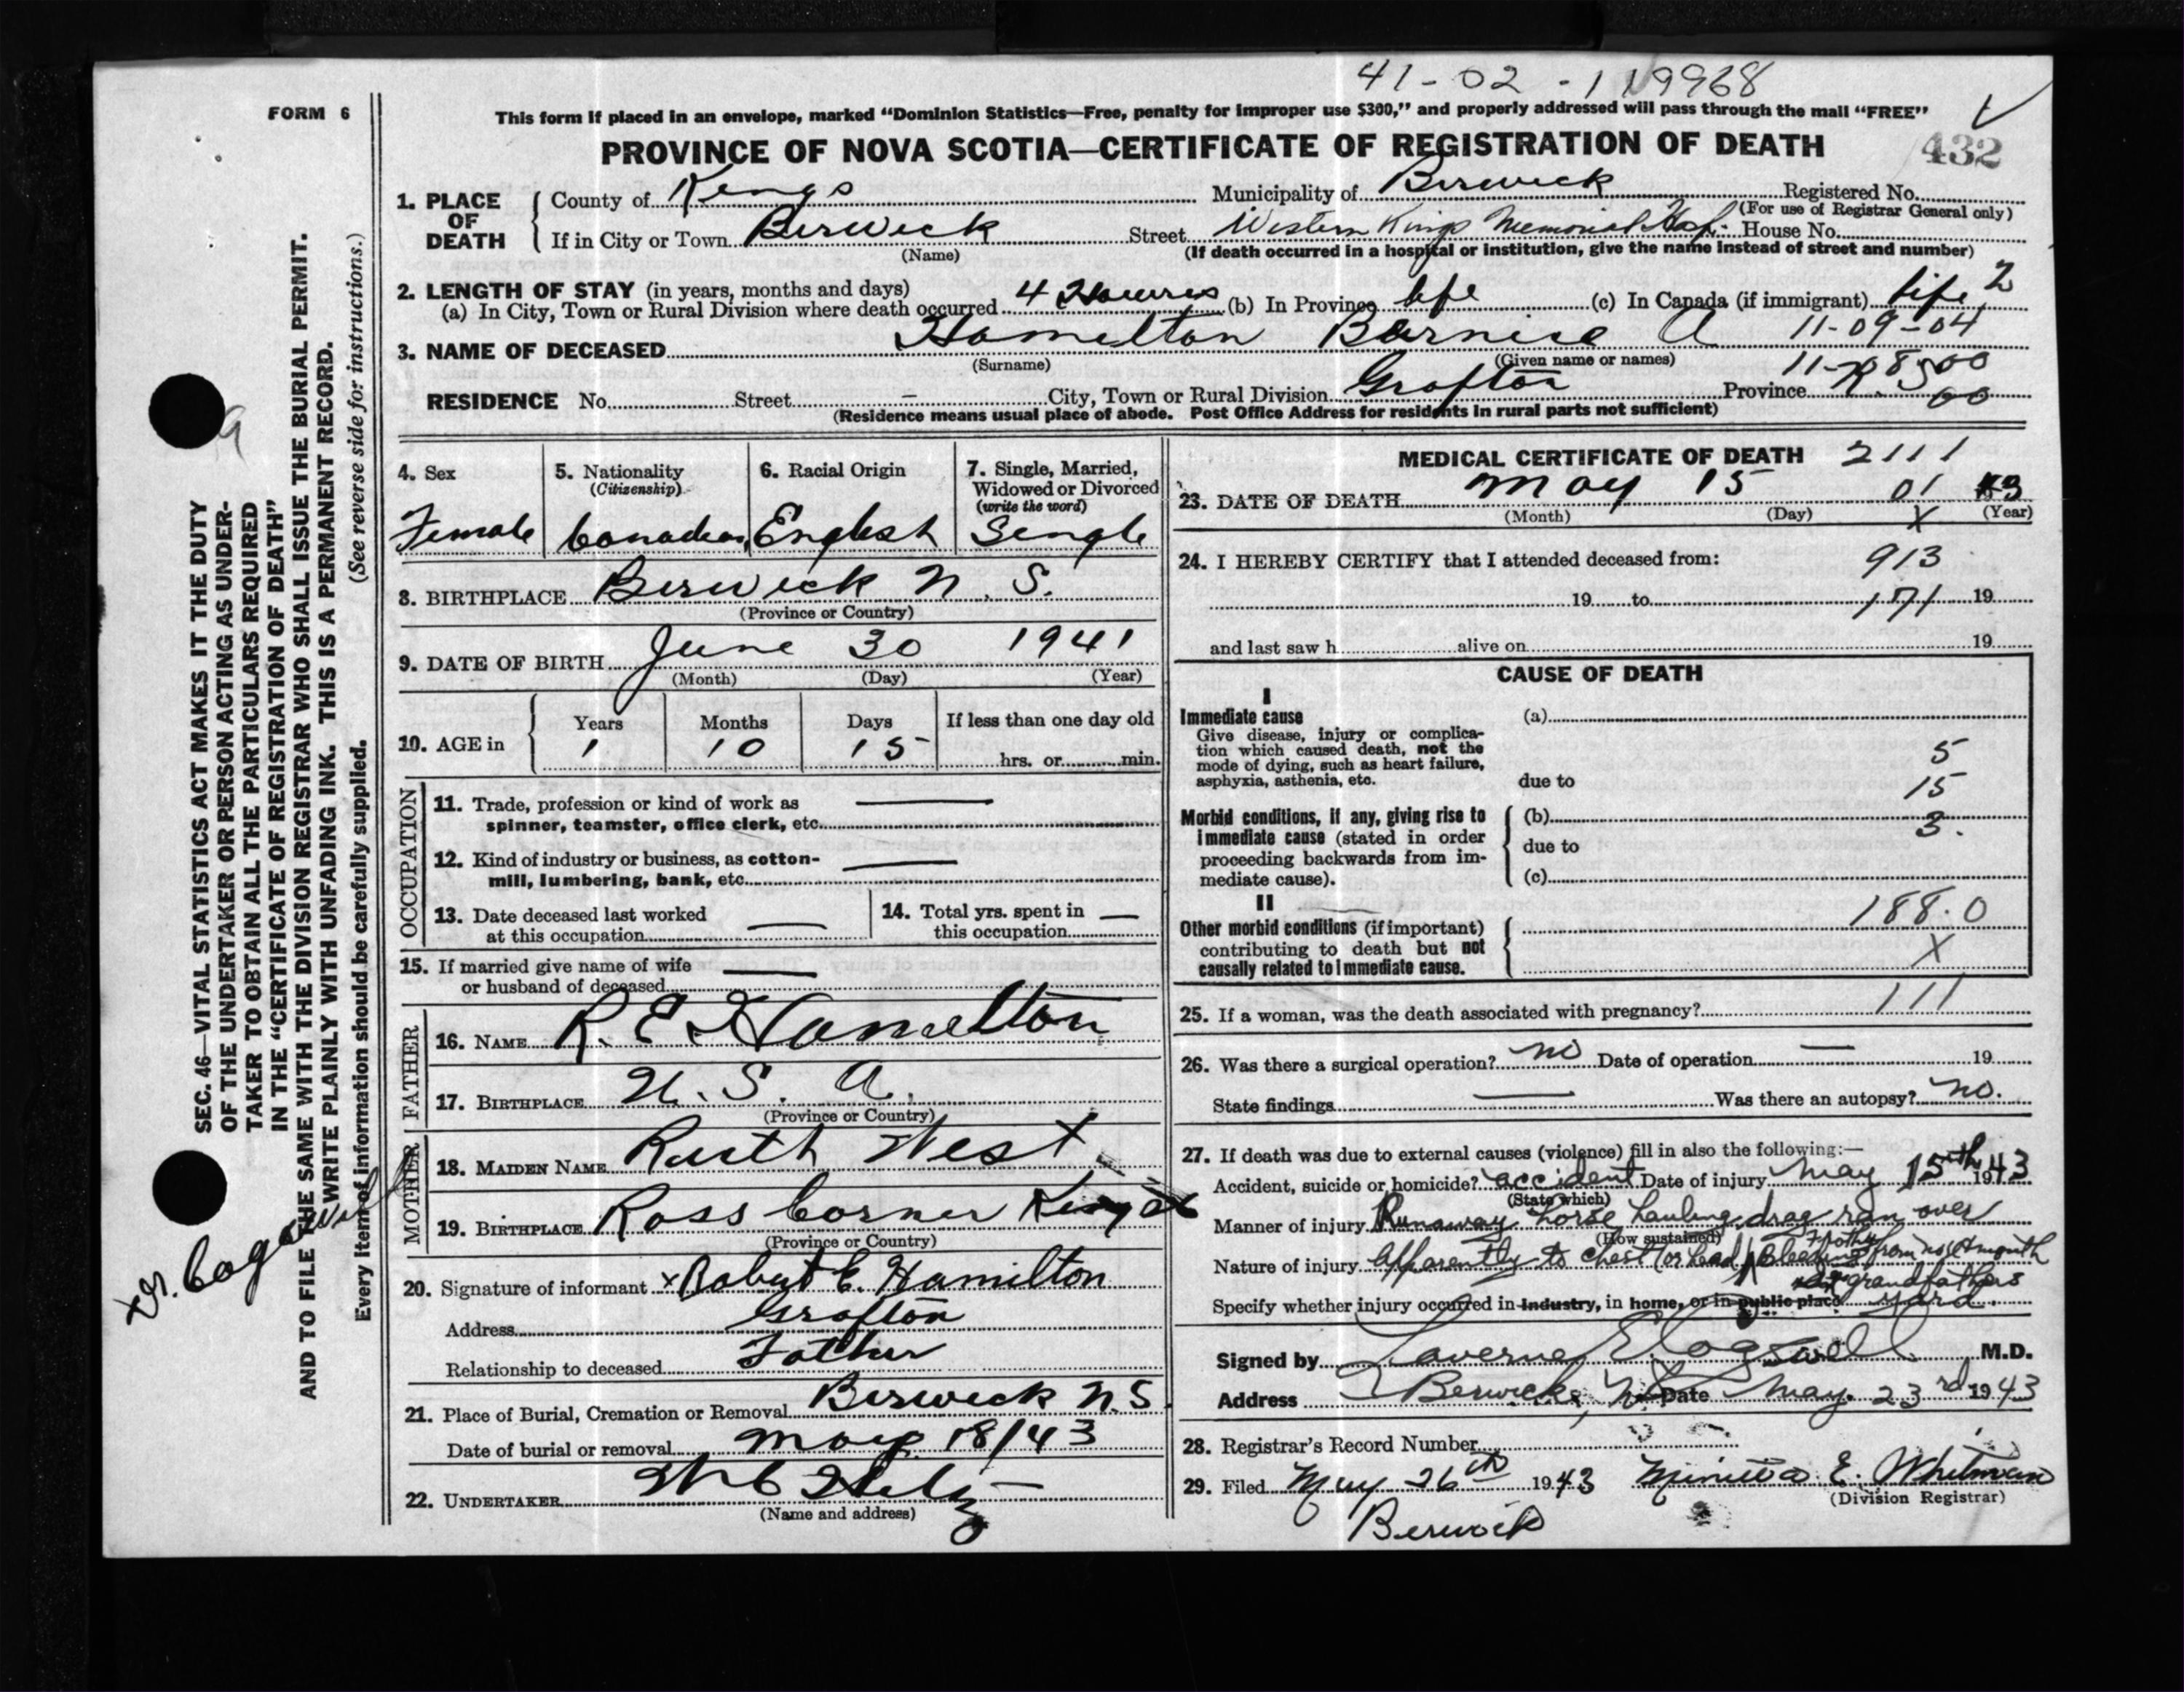 41-02-119968
FORM 6
This form if placed in an envelope, marked “Dominion Statistics—Free, penalty for improper use $300,” and properly addressed will pass through the mail “FREE”
PROVINCE OF NOVA SCOTIA—CERTIFICATE OF REGISTRATION OF DEATH
432
1. PLACE OF DEATH County of Kings Municipality of Berwick Registered No.
(For use of Registrar General only)
If in City or Town Berwick Street Western Kings Memorial Hosp. House No.
(Name) (If death occurred in a hospital or institution, give the name instead of street and number)
2. LENGTH OF STAY (in years, months and days)
(a) In City, Town or Rural Division where death occurred 4 Houres (b) In Province life (c) In Canada (if immigrant) life 2
3. NAME OF DECEASED Hamelton Bernice A 11-09-04
(Surname) (Given name or names)
RESIDENCE No. Street – City, Town or Rural Division Grafton Province
(Residence means usual place of abode. Post Office Address for residents in rural parts not sufficient)
4. Sex
Female
5. Nationality
(Citizenship)
Canadian
6. Racial Origin
English
7. Single, Married,
Widowed or Divorced
(write the word)
Single
8. BIRTHPLACE Berwick N. S.
(Province or Country)
9. DATE OF BIRTH June 30 1941
(Month) (Day) (Year)
10. AGE in Years Months Days If less than one day old
1 10 15 hrs. or min.
OCCUPATION
11. Trade, profession or kind of work as
spinner, teamster, office clerk, etc.
12. Kind of industry or business, as cotton-
mill, lumbering, bank, etc.
13. Date deceased last worked
at this occupation
14. Total yrs. spent in
this occupation
15. If married give name of wife
or husband of deceased
FATHER
16. NAME R. E. Hamelton
17. BIRTHPLACE U. S. A.
(Province or Country)
MOTHER
18. MAIDEN NAME Ruth West
19. BIRTHPLACE Ross Corner Kings
(Province or Country)
20. Signature of informant x Robert E. Hamilton
Address Grafton
Relationship to deceased Father
21. Place of Burial, Cremation or Removal Berwick N.S.
Date of burial or removal May 18/43
22. UNDERTAKER
(Name and address)
MEDICAL CERTIFICATE OF DEATH 2111
23. DATE OF DEATH May 15 01 43
(Month) (Day) X (Year)
24. I HEREBY CERTIFY that I attended deceased from: 913
19 to 171 19
and last saw h alive on 19
CAUSE OF DEATH
I
Immediate cause (a)
Give disease, injury or complica-
tion which caused death, not the
mode of dying, such as heart failure,
asphyxia, asthenia, etc. due to
5
15
Morbid conditions, if any, giving rise to (b)
immediate cause (stated in order
3.
proceeding backwards from im- due to
mediate cause). (c)
II
188.0
Other morbid conditions (if important)
contributing to death but not
causally related to immediate cause.
X
25. If a woman, was the death associated with pregnancy? 111
26. Was there a surgical operation? no Date of operation — 19
State findings — Was there an autopsy? no.
27. If death was due to external causes (violence) fill in also the following:—
Accident, suicide or homicide? accident Date of injury May 15th 1943
(State which)
Manner of injury Runaway horse hauling drag ran over
(How sustained)
Nature of injury Apparently to chest (or head) Frothy Bleeding from nose & mouth
grandfathers
Specify whether injury occurred in industry, in home, or in public place yard.
Signed by Laverne E Cogswell M.D.
Address Berwick, N.S. Date May. 23rd 1943
28. Registrar's Record Number
29. Filed May 26th 1943 Minetta E. Whitman
(Division Registrar)
Berwick
SEC. 46—VITAL STATISTICS ACT MAKES IT THE DUTY
OF THE UNDERTAKER OR PERSON ACTING AS UNDER-
TAKER TO OBTAIN ALL THE PARTICULARS REQUIRED
IN THE “CERTIFICATE OF REGISTRATION OF DEATH”
AND TO FILE THE SAME WITH THE DIVISION REGISTRAR WHO SHALL ISSUE THE BURIAL PERMIT.
WRITE PLAINLY WITH UNFADING INK. THIS IS A PERMANENT RECORD.
Every item of information should be carefully supplied. (See reverse side for instructions.)
Dr. Cogswell